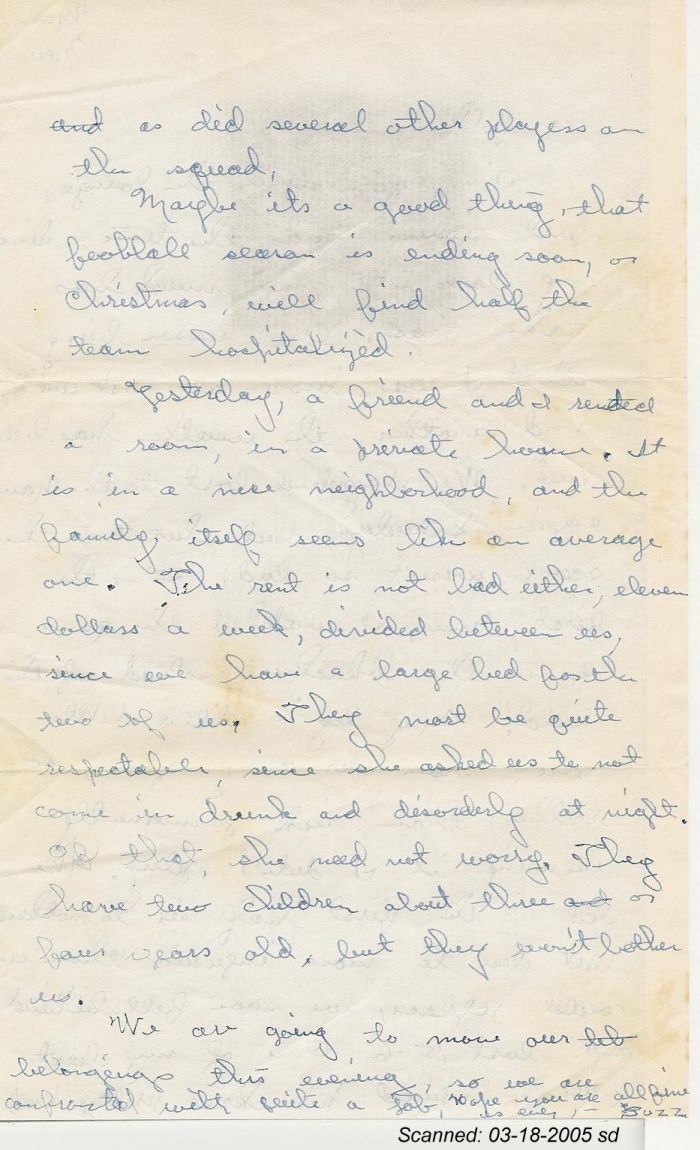 and as did several other players on
the squad,
Maybe its a good thing, that
football season is ending soon, or
Christmas, will find half the
team hospitalized.
Yesterday, a friend and I rented
a room, in a private home. It
is in a nice neighborhood, and the
family, itself seems like an average
one. The rent is not bad either, eleven
dollars a week, divided between us,
since we have a large bed for the
two of us. They most be quite
respectable, since she asked us to not
come in drunk and disorderly at night.
Of that, she need not worry. They
have two children about three and or
four years old, but they won't bother
us.
We are going to move our
belongings this evening, so we are
confronted with quite a job, Hope you are all fine
as ever, - Buzz
Scanned: 03-18-2005 sd